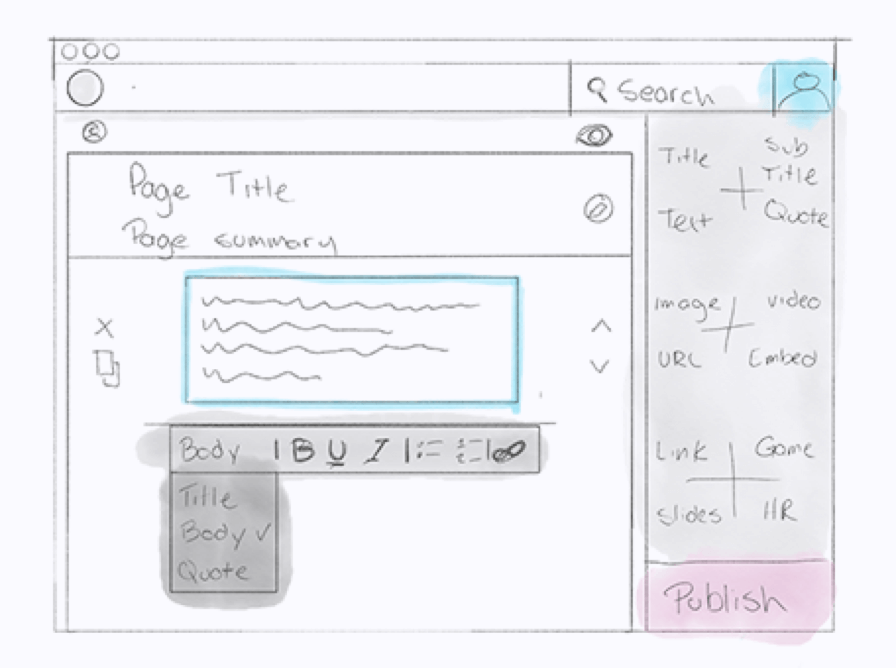 Search
Page Title
Page summary
Body B U I
Title
Body ✓
Quote
Title
Sub Title
Text
Quote
Image
video
URL
Embed
Link
Game
Slides
HR
Publish